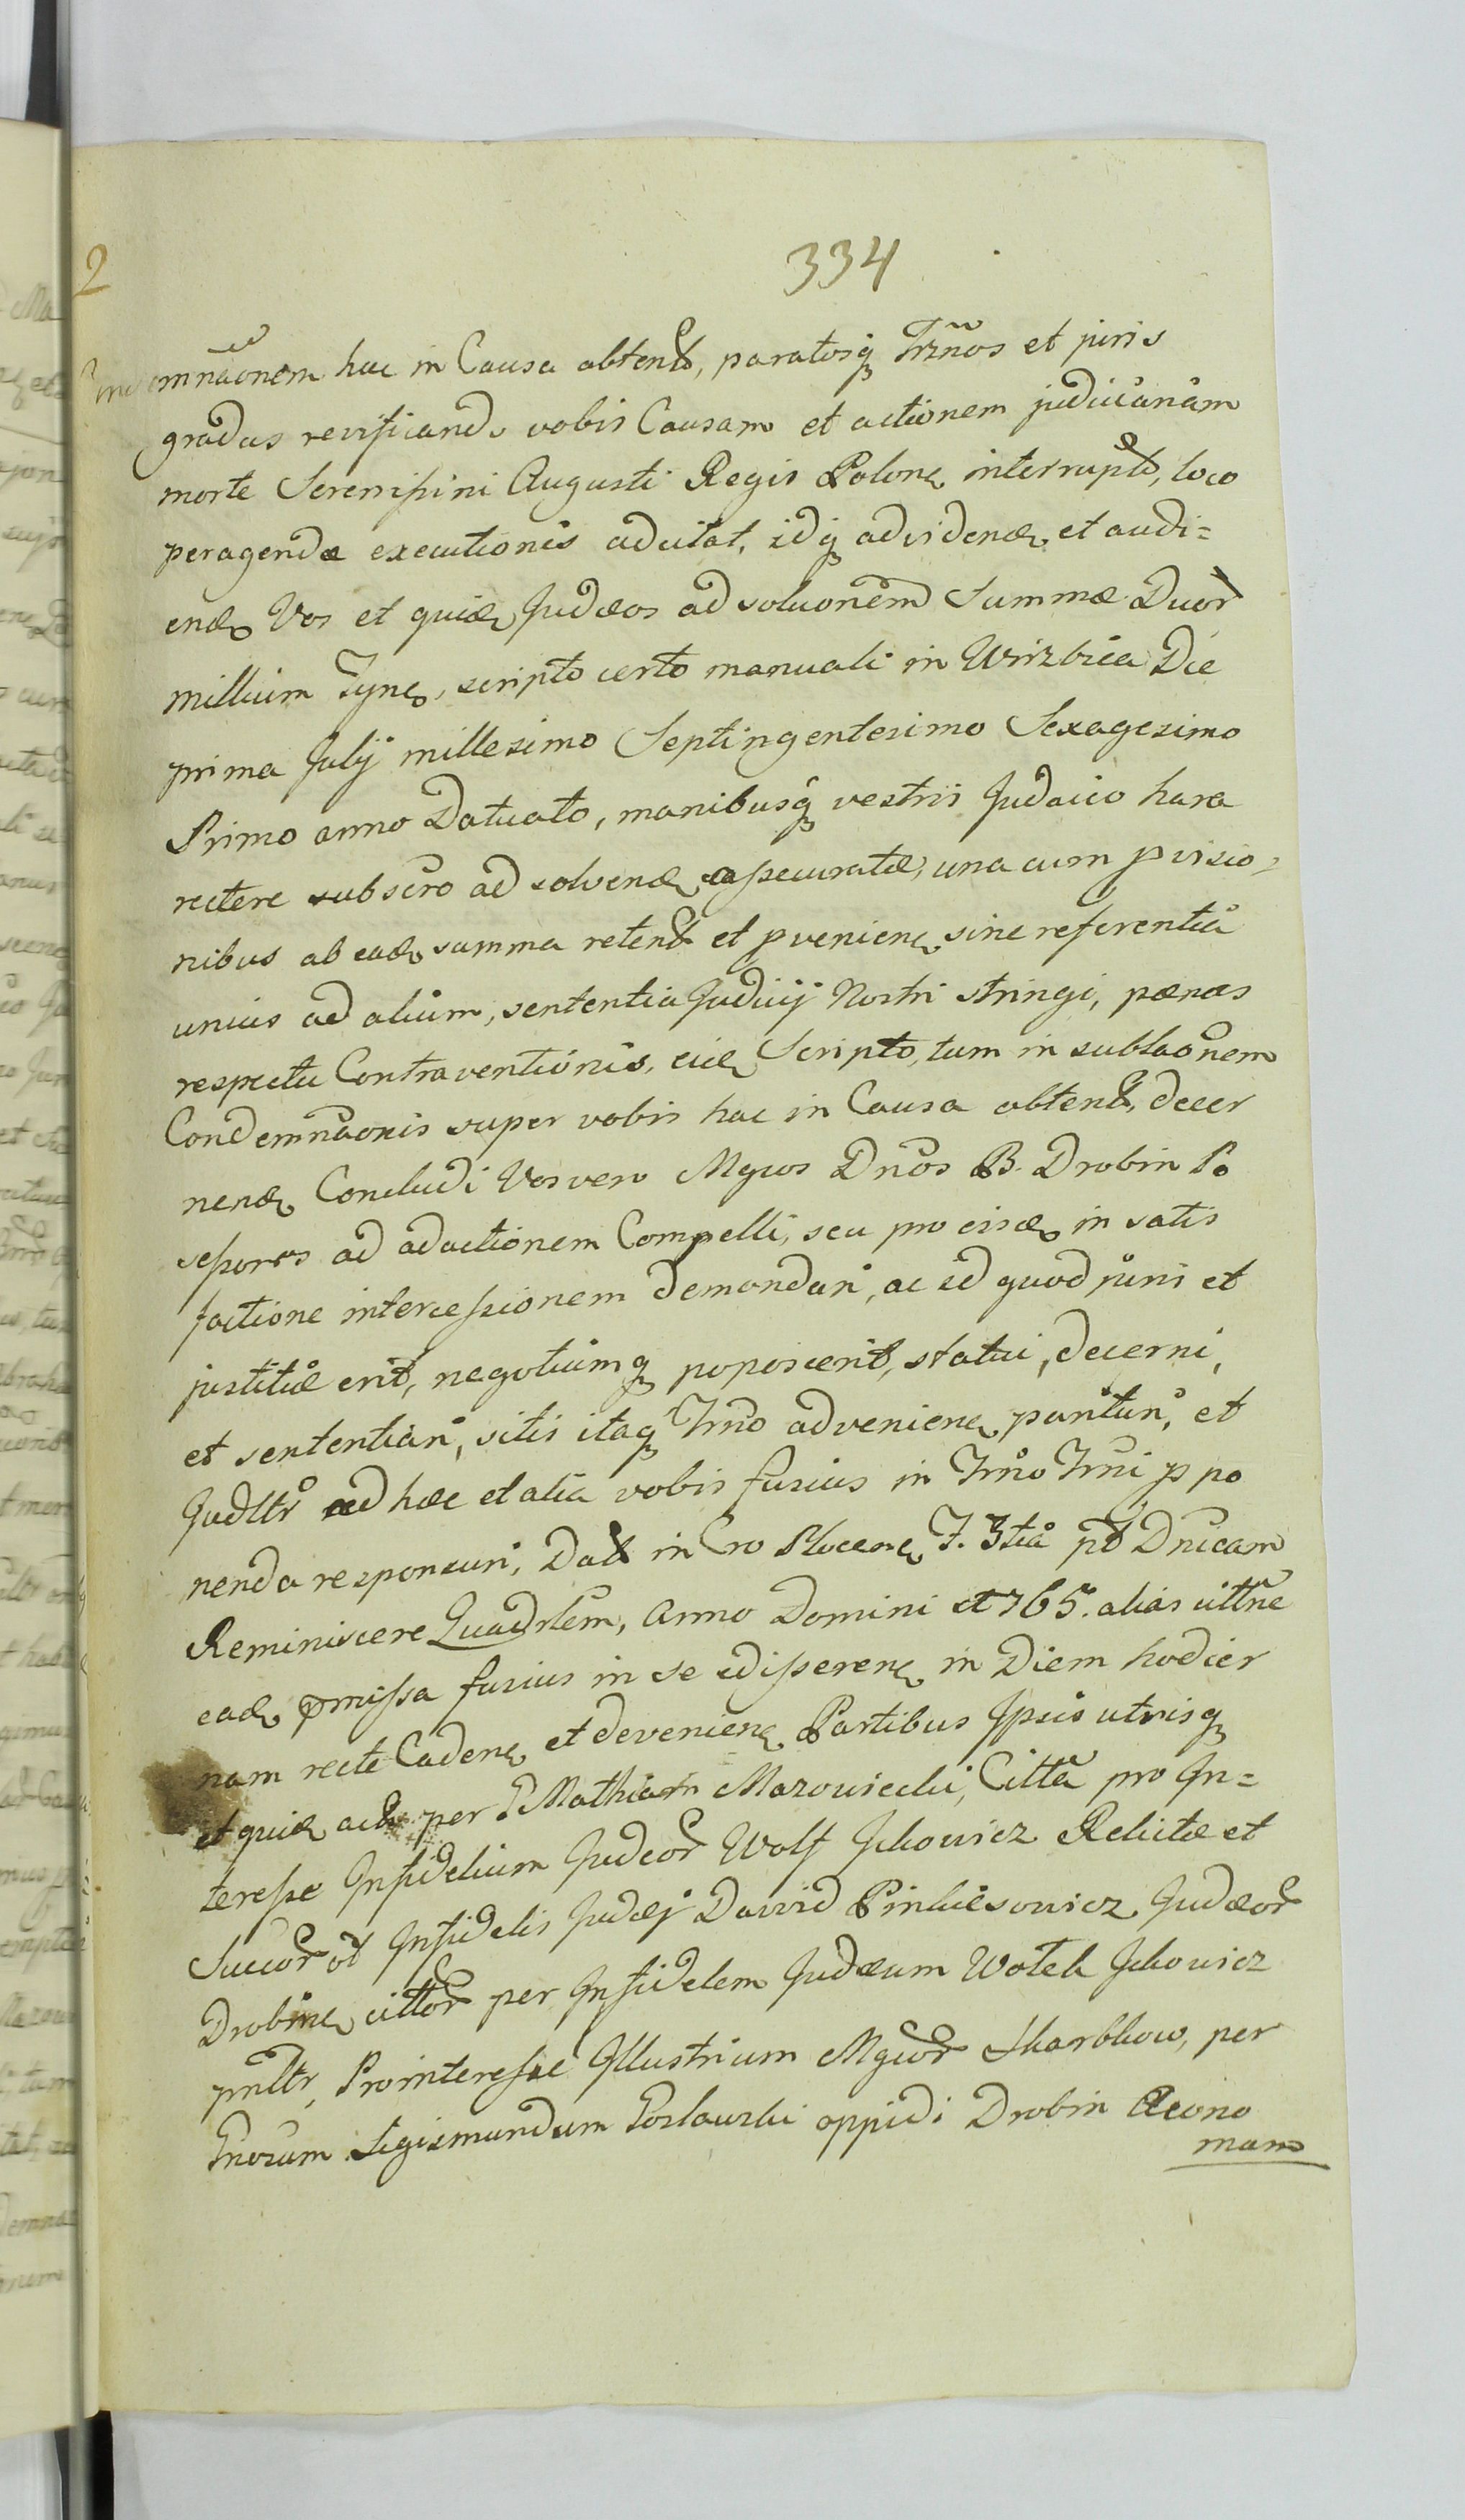 2
334
emnãonem hac in Causa obtent, paratosq Trznos et juris
gradus revisicando vobis Causam et actionem judicanam
morte Serenissini Augusti Regis Polone interrupt, loco
peragendæ executionis adcitat, idq ad videnð, et audi=
enð Vos et quið Judæos ad soluonem Summæ Duor
millium Tynf, scripto certo manuali in Wirzbica Die
prima Julij millesimo Septingentesimo Sexagesimo
Primo anno Datuato, manibusq vestris Judaico hara
ctere subscro ad solvenð assecuratæ, una cum pvisio,
nibus ab eað summa retent et pveniene sine referentia
unius ad alium, sententia Judicij Nostri stringi, pænas
respectu Contraventionis, eið Scripto, tum in sublaonem
Condemnãonis super vobis hac in Causa obtent, decer
nenð Concludi Vos vero Mgcos Dnos B. Drobin Po
sessores ad adactionem Compelli, seu pro eisð in satis
factione intercessionem demandari, ac id quod juris et
justitiæ erit, negotiumq poposcerit, statui, decerni,
et sententiari, sitis itaq Trño adveniene parituri, et
Judltr ad hæc et alia vobis fusius in Trño Trñi p po
nenda responsuri, Dat in Cro Plocene F. 3tia pt Dnicam
Reminiscere Quadrlem, Anno Domini 1765. alias cittne
eað pmissa fusius in se edisserene in Diem hodier
nam recte Cadene et deveniene Partibus Ipsis utrisq
et quið act per G Mathiam Mazowiecki, Citta pro In=
teresse Infidelium Judeor Wolf Jckowicz Relictæ et
Succor ol Infidelis Judæj Dawid Pinkiesowicz Judæor
Drobine cittor per Infidelem Judæum Wolek Jckowicz
pnltr, Pro interesse Illustrium Mgcor Skarbkow, per
Gnosum Sigismundum Goslawski oppidi Drobin Æcono
mam